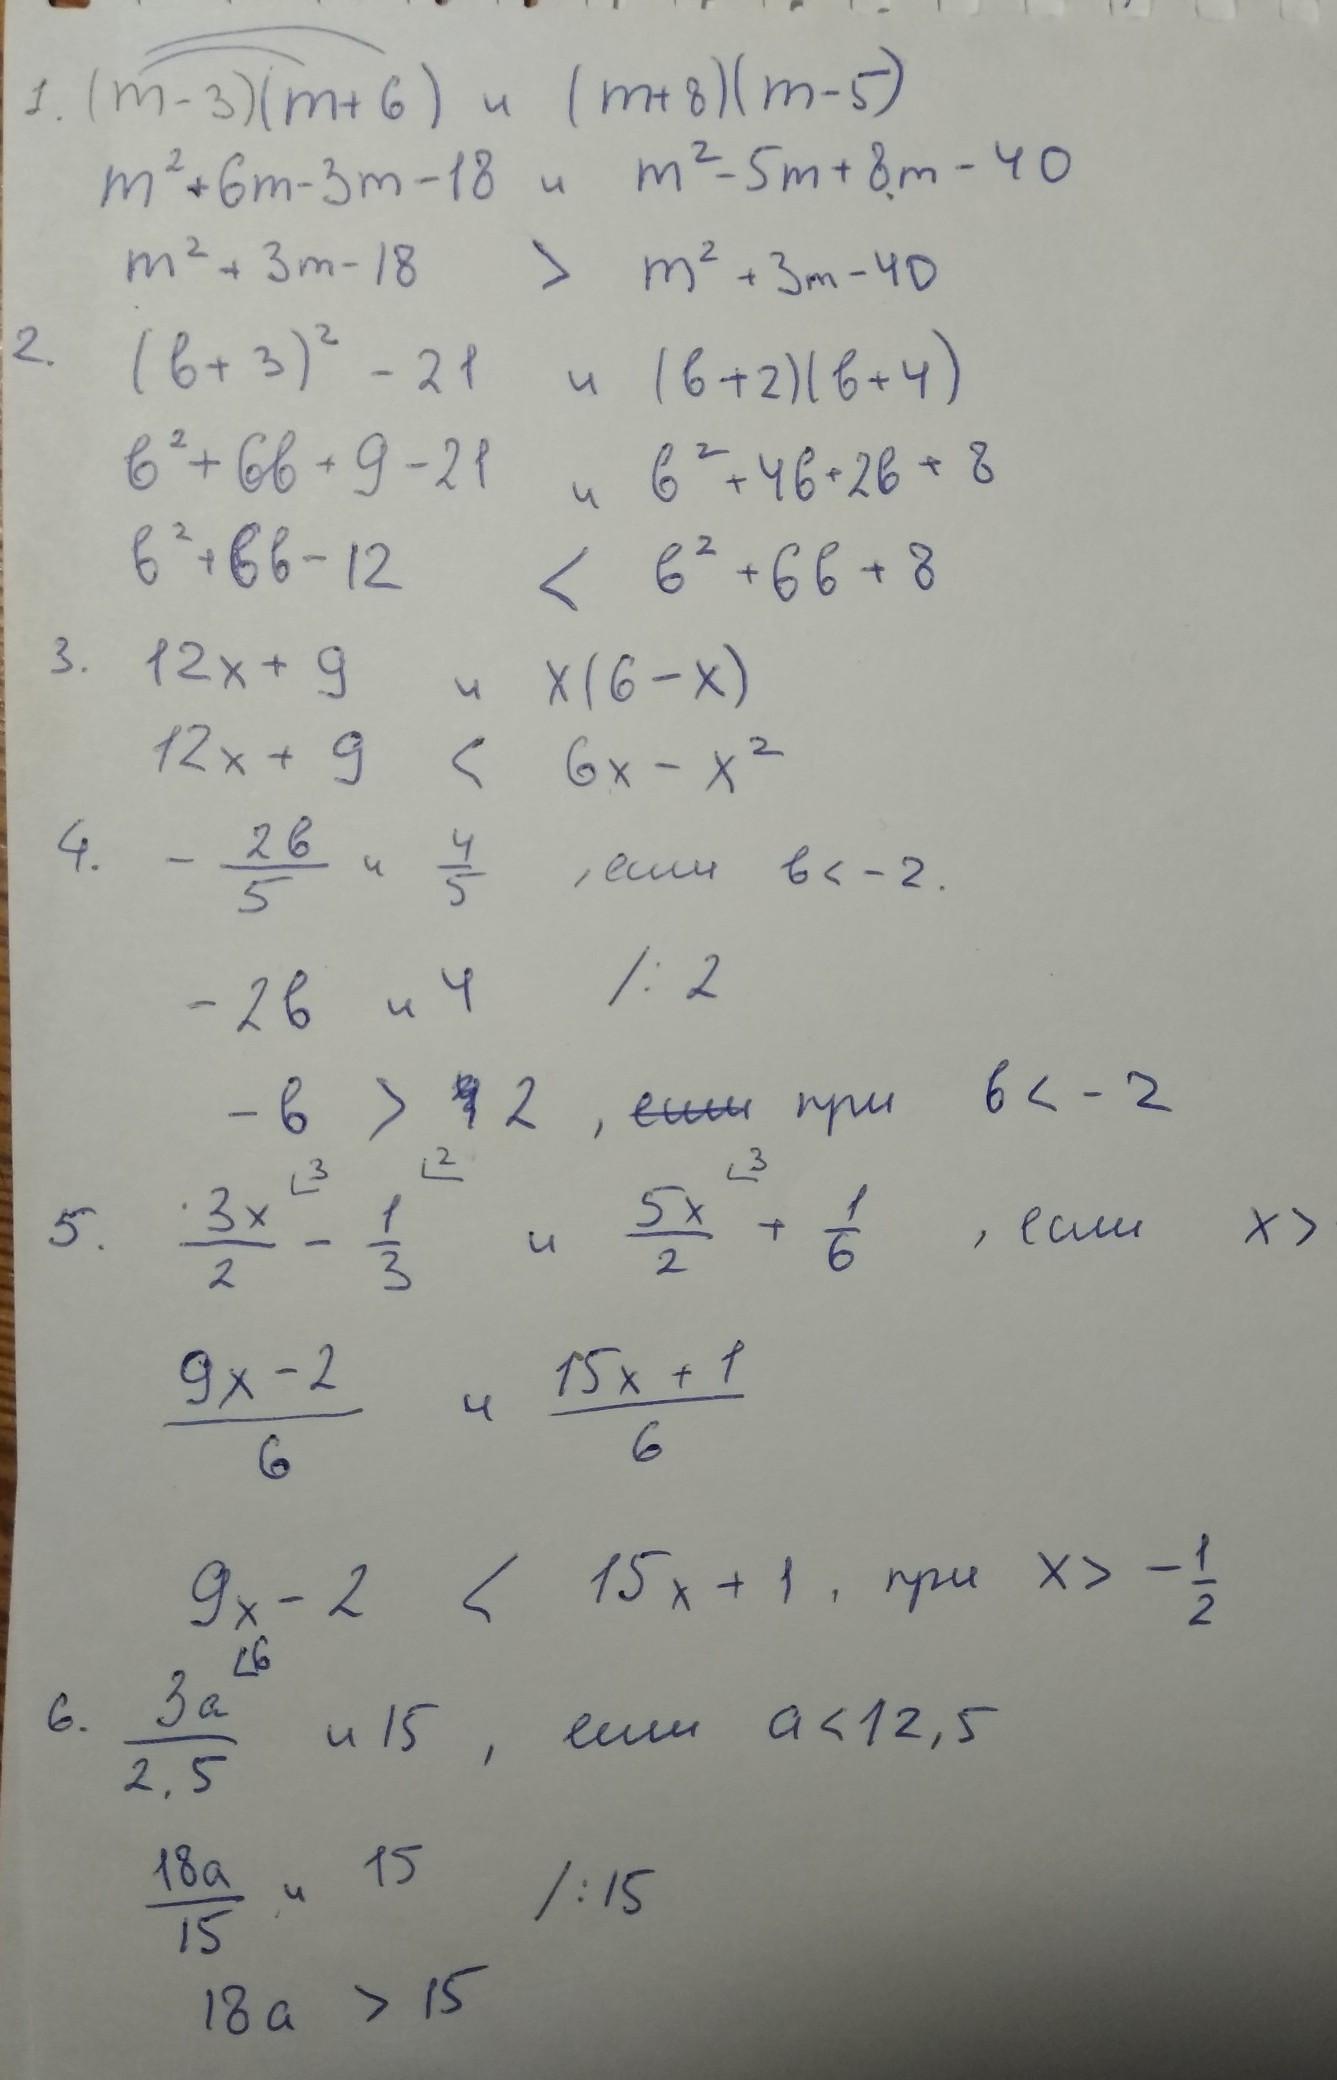 1. (m-3)(m+6) и (m+8)(m-5)
m²+6m-3m-18 и m²-5m+8m-40
m²+3m-18 > m²+3m-40
2. (в+3)²-21 и (в+2)(в+4)
в²+6в+9-21 и в²+4в+2в+8
в²+6в-12 < в²+6в+8
3. 12x+9 и x(6-x)
12x+9 < 6x-x²
4. -2в/5 и 4/5, если в<-2.
-2в и 4 /:2
-в > 2, если при в<-2
5. 3x/2 ⌊3 - 1/3 ⌊2 и 5x/2 ⌊3 + 1/6, если x>
9x-2/6 и 15x+1/6
9x-2 < 15x+1, при x>-1/2
6. 3a/2,5 ⌊6 и 15, если a<12,5
18a/15 и 15 /:15
18a > 15